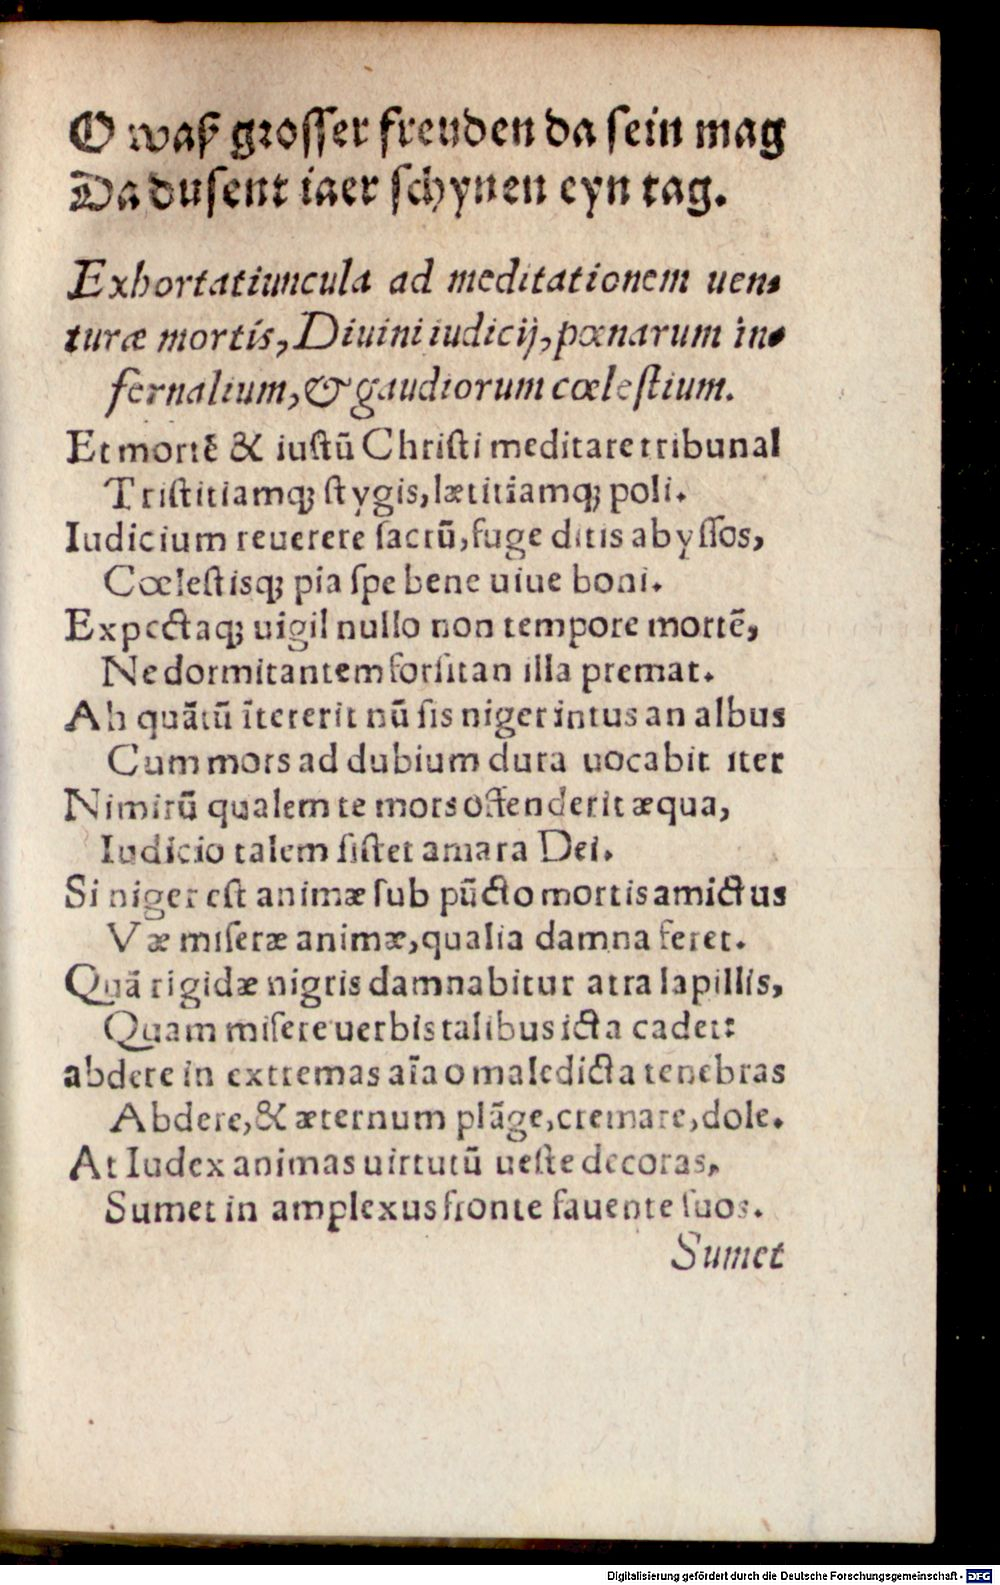 O waß grosser freuden da sein mag
Da dusent iaer schynen eyn tag.
Exhortatiuncula ad meditationem uen⸗
turæ mortis, Diuini iudicij, pœnarum in⸗
fernalium, & gaudiorum cœlestium.
Et mortē & iustū Christi meditare tribunal
Tristitiamq; stygis, lætitiamq; poli.
Iudicium reuerere sacrū, fuge ditis abyssos,
Cœlestisq; pia spe bene uiue boni.
Expectaq; uigil nullo non tempore mortē,
Ne dormitantem forsitan illa premat.
Ah quātū ītererit nū sis niger intus an albus
Cum mors ad dubium dura uocabit iter
Nimirū qualem te mors ostenderit æqua,
Iudicio talem sistet amara Dei.
Si niger est animæ sub pūcto mortis amictus
Væ miseræ animæ, qualia damna feret.
Quā rigidæ nigris damnabitur atra lapillis,
Quam misere uerbis talibus icta cadet:
abdere in extremas aīa o maledicta tenebras
Abdere, & æternum plāge, cremare, dole.
At Iudex animas uirtutū ueste decoras,
Sumet in amplexus fronte fauente suos.
Sumet
Digitalisierung gefördert durch die Deutsche Forschungsgemeinschaft - DFG